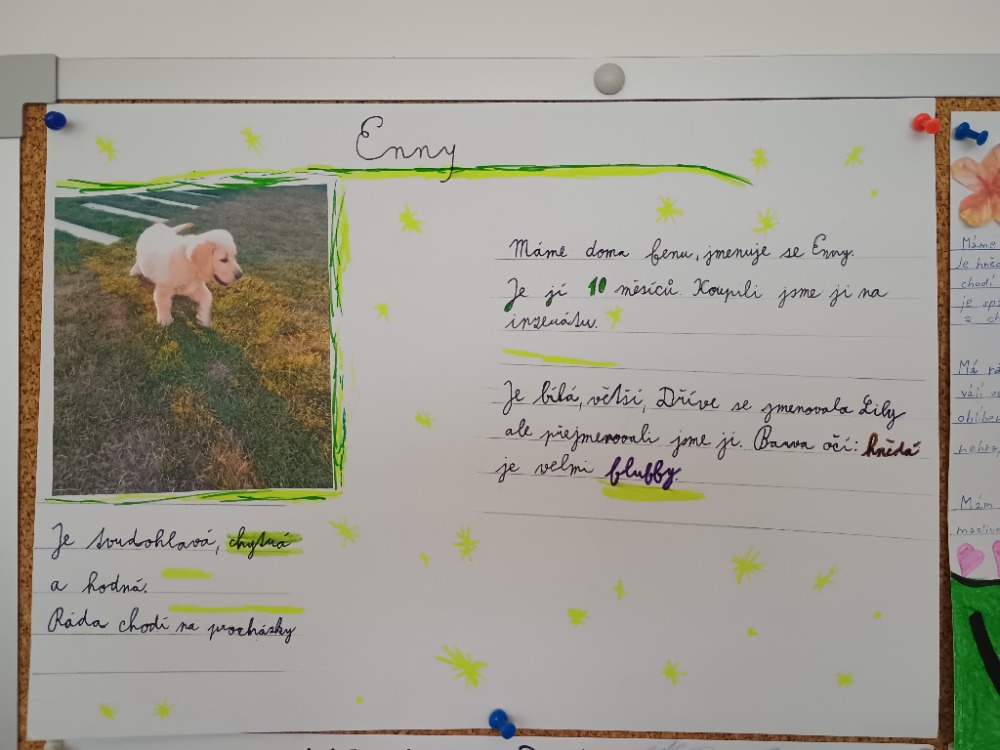 Enny
Máme doma fenu, jmenuje se Enny.
Je jí 10 měsíců. Koupili jsme ji na
inzerátu.
Je bílá, větší, Dříve se jmenovala Lily
ale přejmenovali jsme ji. Barva očí: hnědá
je velmi fluffy.
Je tvrdohlavá, chytrá
a hodná.
Ráda chodí na procházky
Máme
je hně
chodí
je sp
a ch
Má rá
válí v
oblíbe
nehra
Mám
mazliv